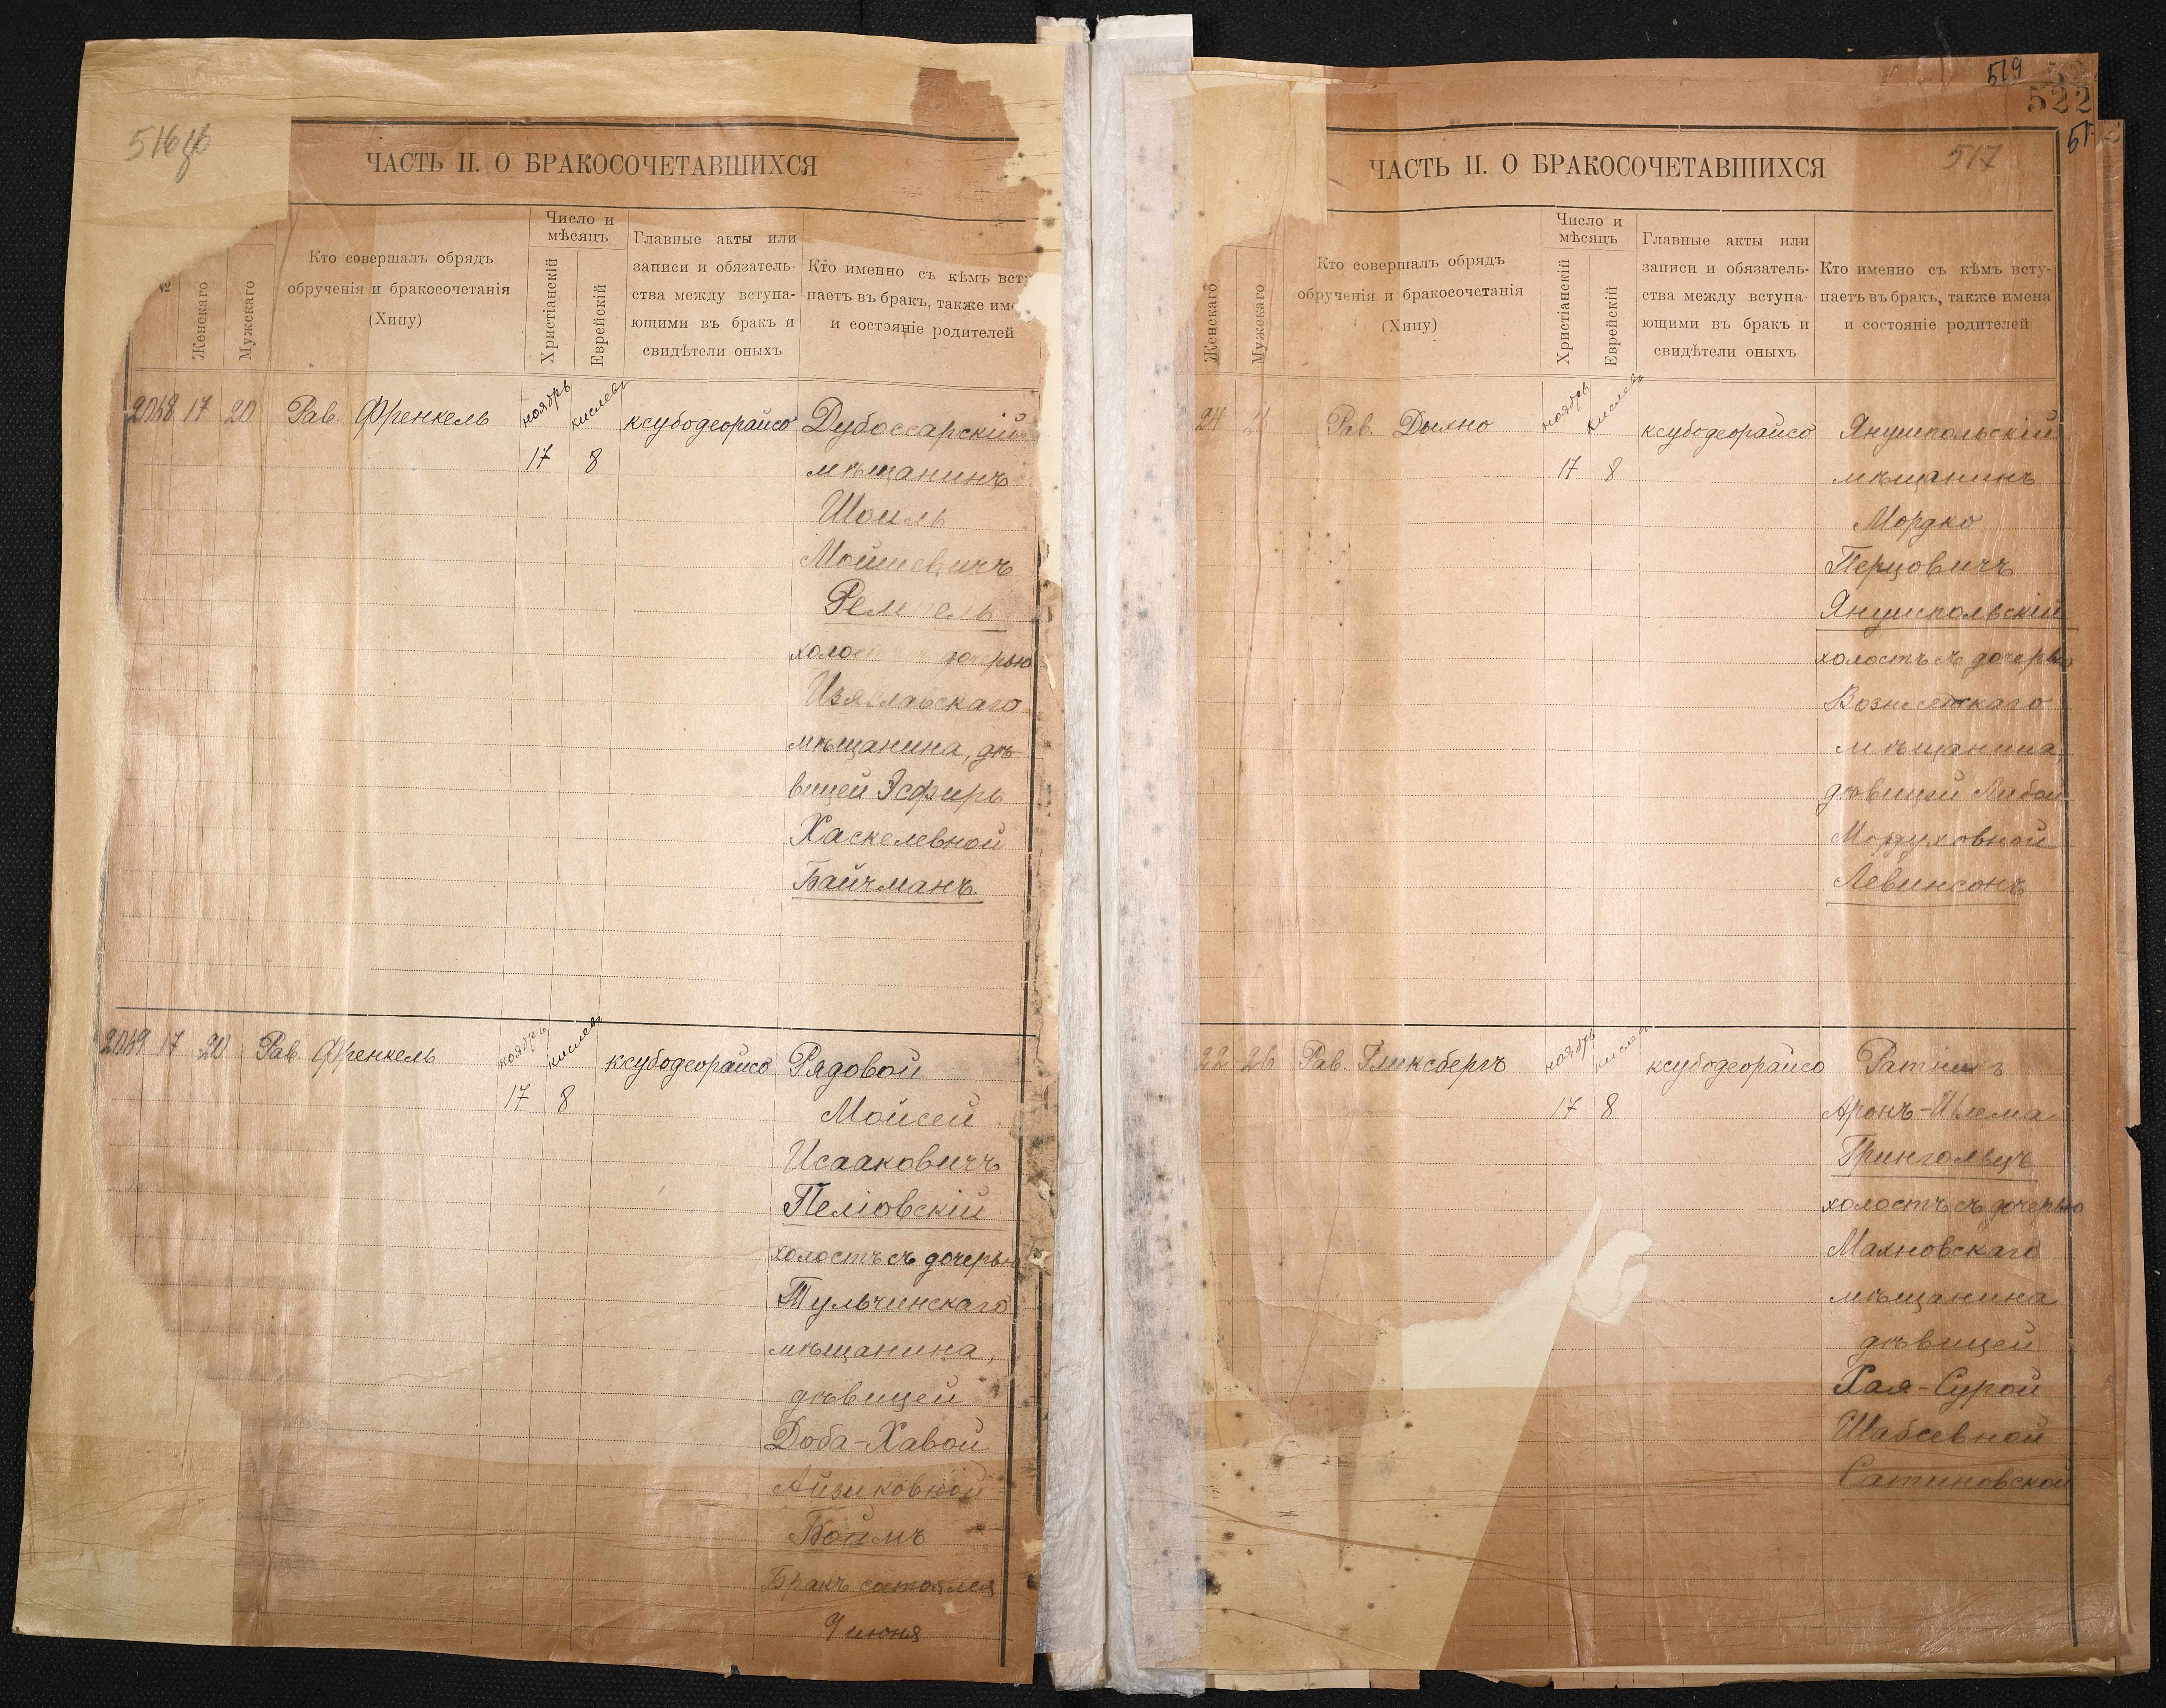 516 об
ЧАСТЬ II. О БРАКОСОЧЕТАВШИХСЯ
№
Женскаго
Мужскаго
Кто совершалъ обрядъ
обрученія и бракосочетанія
(Хипу)
Число и
мѣсяцъ
Христіанскій
Еврейскій
Главные акты или
записи и обязатель-
ства между вступа-
ющими въ бракъ и
свидѣтели оныхъ
Кто именно съ кѣмъ всту
паетъ въ бракъ, также име
и состояніе родителей
2068 17 20 Рав. Френкель ноябрь кислевъ ксубодеорайсо Дубоссарскій
17 8 мѣщанинъ
Шоиль
Мошковичъ
холос дочерью
Изяславскаго
мѣщанина, дѣ-
вицей Эсфирь
Хаскелевной
Байчманъ.
2069 17 20 Рав. Френкель ноябрь кислевъ ксубодеорайсо Рядовой
17 8 Мойсей
Исааковичъ
Пеліовскій
холостъ съ дочерью
Тульчинскаго
мѣщанина,
дѣвицей
Доба-Хавой
Айзиковной
Боймъ
Бракъ состоялся
9 июня
519
522
517
ЧАСТЬ II. О БРАКОСОЧЕТАВШИХСЯ
Женскаго
Мужскаго
Кто совершалъ обрядъ
обрученія и бракосочетанія
(Хипу)
Число и
мѣсяцъ
Христіанскій
Еврейскій
Главные акты или
записи и обязатель-
ства между вступа-
ющими въ бракъ и
свидѣтели оныхъ
Кто именно съ кѣмъ всту-
паетъ въ бракъ, также имена
и состояніе родителей
24 Рав. Дыхно ноябрь кислевъ ксубодеорайсо Янушпольскій
17 8 мѣщанинъ
Мордко
Перцовичъ
Янушпольскій
холостъ съ дочерью
мѣщанина,
дѣвицей Либой
Мордуховной
Левинсонъ
22 26 Рав. Гликсбергъ ноябрь кислевъ ксубодеорайсо Ратникъ
17 8 Аронъ-Шлема
Грингольцъ
холостъ съ дочерью
Махновскаго
мѣщанина
дѣвицей
Хая-Сурой
Шабсевной
Сатановской